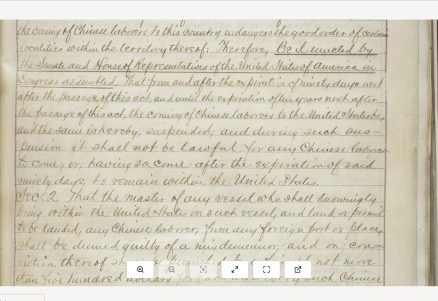 the coming of Chinese laborers to this country endangers the good order of certain
localities within the territory thereof: Therefore, Be it enacted by
the Senate and House of Representatives of the United States of America in
Congress assembled, That from and after the expiration of ninety days next
after the passage of this act, and until the expiration of ten years next after
the passage of this act, the coming of Chinese laborers to the United States be,
and the same is hereby, suspended; and during such sus-
pension it shall not be lawful for any Chinese laborer
to come, or, having so come after the expiration of said
ninety days, to remain within the United States.
Sec. 2. That the master of any vessel who shall knowingly
bring within the United States on such vessel, and land or permit
to be landed, any Chinese laborer, from any foreign port or place,
shall be deemed guilty of a misdemeanor, and on con-
viction thereof shall be punished by a fine of not more
than five hundred dollars for each and every such Chinese